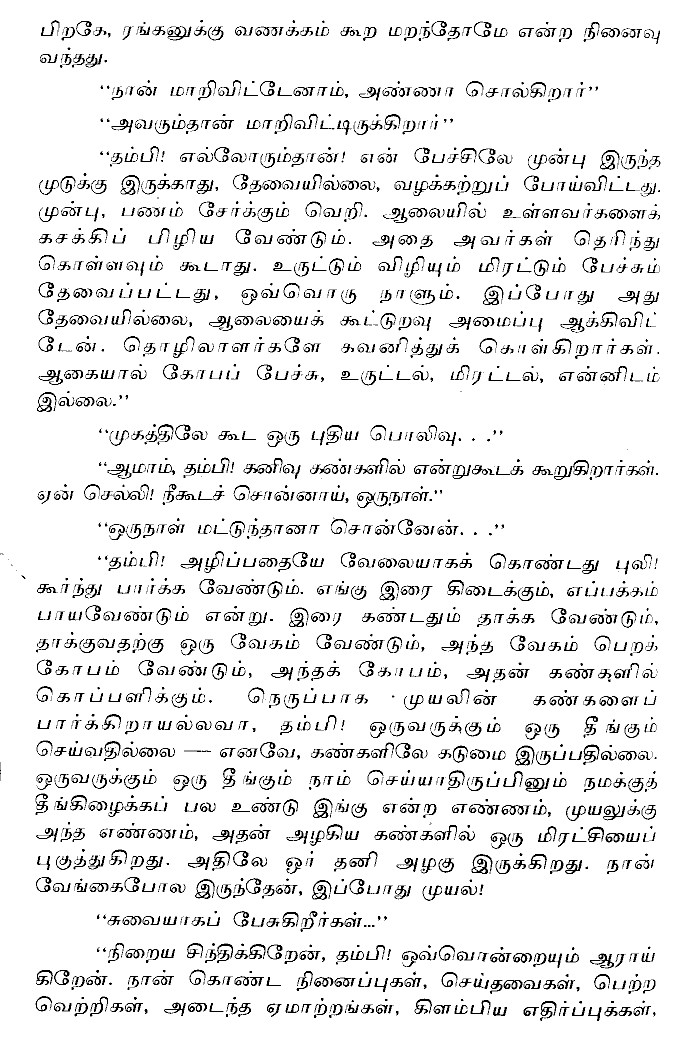 பிறகே, ரங்கனுக்கு வணக்கம் கூற மறந்தோமே என்ற நினைவு
வந்தது.
“நான் மாறிவிட்டேனாம், அண்ணா சொல்கிறார்”
“அவரும்தான் மாறிவிட்டிருக்கிறார்”
“தம்பி! எல்லோரும்தான்! என் பேச்சிலே முன்பு இருந்த
முடுக்கு இருக்காது, தேவையில்லை, வழக்கற்றுப் போய்விட்டது.
முன்பு, பணம் சேர்க்கும் வெறி. ஆலையில் உள்ளவர்களைக்
கசக்கிப் பிழிய வேண்டும். அதை அவர்கள் தெரிந்து
கொள்ளவும் கூடாது. உருட்டும் விழியும் மிரட்டும் பேச்சும்
தேவைப்பட்டது, ஒவ்வொரு நாளும். இப்போது அது
தேவையில்லை, ஆலையைக் கூட்டுறவு அமைப்பு ஆக்கிவிட்
டேன். தொழிலாளர்களே கவனித்துக் கொள்கிறார்கள்.
ஆகையால் கோபப் பேச்சு, உருட்டல், மிரட்டல், என்னிடம்
இல்லை.”
“முகத்திலே கூட ஒரு புதிய பொலிவு. . .”
“ஆமாம், தம்பி! கனிவு கண்களில் என்றுகூடக் கூறுகிறார்கள்.
ஏன் செல்லி! நீகூடச் சொன்னாய், ஒருநாள்.”
“ஒருநாள் மட்டுந்தானா சொன்னேன். . .”
“தம்பி! அழிப்பதையே வேலையாகக் கொண்டது புலி!
கூர்ந்து பார்க்க வேண்டும். எங்கு இரை கிடைக்கும், எப்பக்கம்
பாயவேண்டும் என்று. இரை கண்டதும் தாக்க வேண்டும்,
தாக்குவதற்கு ஒரு வேகம் வேண்டும், அந்த வேகம் பெறக்
கோபம் வேண்டும், அந்தக் கோபம், அதன் கண்களில்
கொப்பளிக்கும். நெருப்பாக முயலின் கண்களைப்
பார்க்கிறாயல்லவா, தம்பி! ஒருவருக்கும் ஒரு தீங்கும்
செய்வதில்லை — எனவே, கண்களிலே கடுமை இருப்பதில்லை.
ஒருவருக்கும் ஒரு தீங்கும் நாம் செய்யாதிருப்பினும் நமக்குத்
தீங்கிழைக்கப் பல உண்டு இங்கு என்ற எண்ணம், முயலுக்கு
அந்த எண்ணம், அதன் அழகிய கண்களில் ஒரு மிரட்சியைப்
புகுத்துகிறது. அதிலே ஓர் தனி அழகு இருக்கிறது. நான்
வேங்கைபோல இருந்தேன், இப்போது முயல்!
“சுவையாகப் பேசுகிறீர்கள்...”
“நிறைய சிந்திக்கிறேன், தம்பி! ஒவ்வொன்றையும் ஆராய்
கிறேன். நான் கொண்ட நினைப்புகள், செய்தவைகள், பெற்ற
வெற்றிகள், அடைந்த ஏமாற்றங்கள், கிளம்பிய எதிர்ப்புக்கள்,